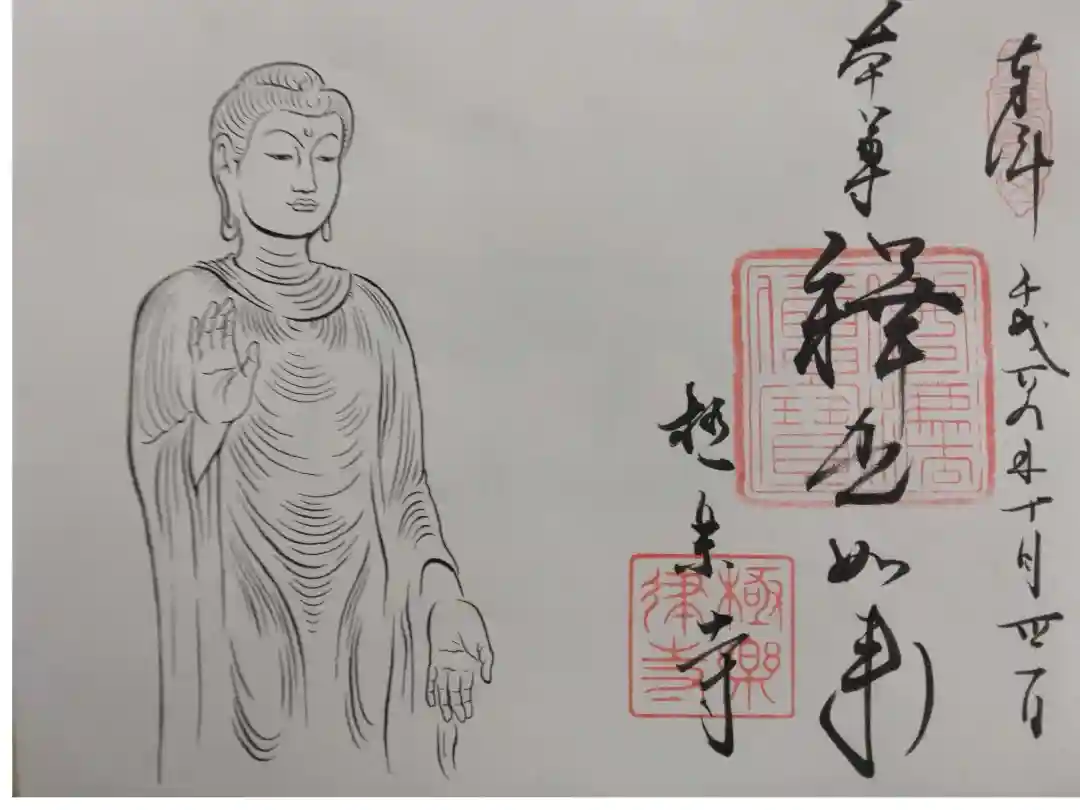 奉拝 平成 年十月四日
本尊 釋迦如来
極楽寺
極樂
律寺